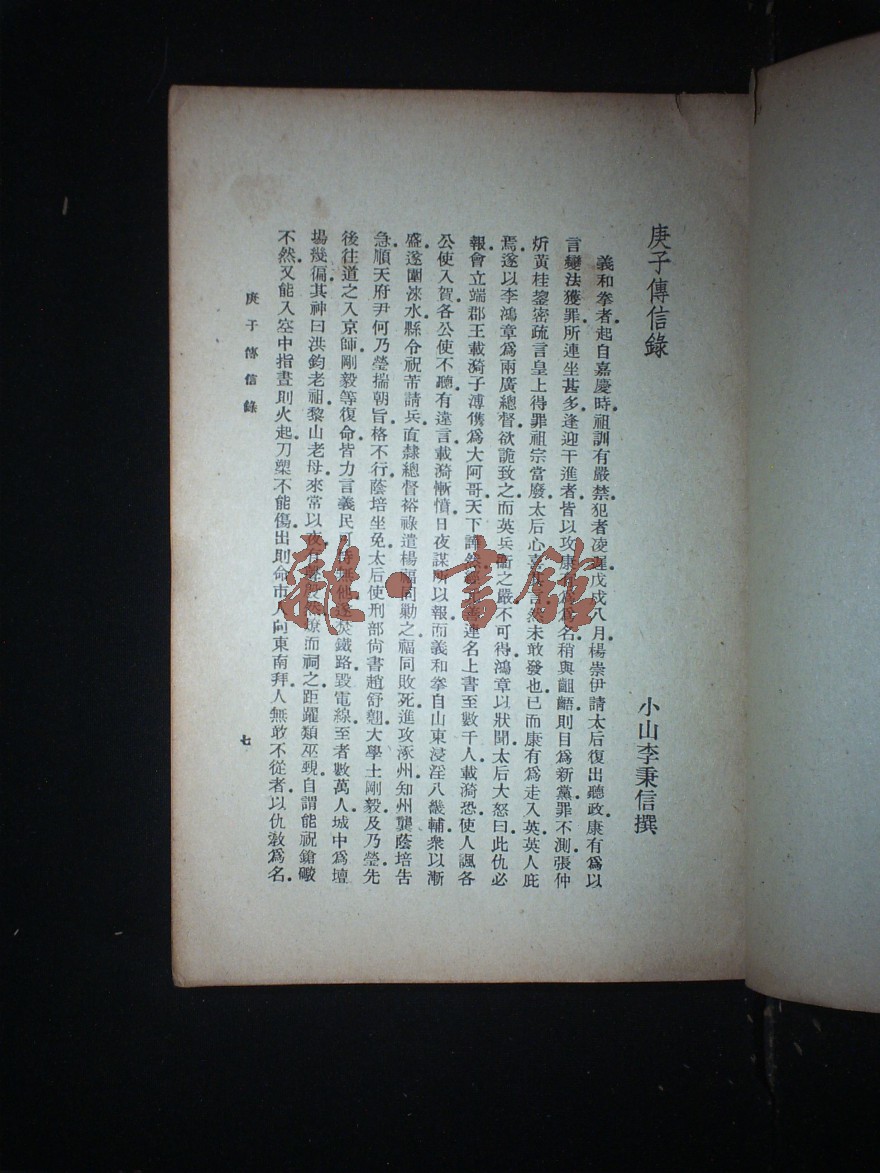 庚子傳信錄
小山李秉信撰
義和拳者起自嘉慶時。祖訓有嚴禁。犯者凌遲。戊戌八月。楊崇伊請太后復出聽政。康有爲以
言變法獲罪。所連坐甚多。逢迎干進者。皆以攻康有爲爲名。稍與齟齬。則目爲新黨。罪不測。張仲
炘黃桂鋆密疏言皇上得罪祖宗當廢。太后心喜其言。然未敢發也。已而康有爲走入英。英人庇
焉。遂以李鴻章爲兩廣總督。欲詭致之。而英兵衞之嚴。不可得。鴻章以狀聞。太后大怒曰。此仇必
報。會立端郡王載漪子溥儁爲大阿哥。天下譁然。連名上書至數千人。載漪恐。使人諷各
公使入賀。各公使不聽。有違言。載漪慚憤。日夜謀所以報。而義和拳自山東浸淫入畿輔。衆以漸
盛。遂圍淶水。縣令祝芾請兵。直隸總督裕祿遣楊福同勦之。福同敗死。進攻涿州。知州龔蔭培吿
急。順天府尹何乃瑩揣朝旨。格不行。蔭培坐免。太后使刑部尙書趙舒翹大學士剛毅及乃瑩先
後往道之入京師。剛毅等復命。皆力言義民可恃無他。遂焚鐵路。毀電線。至者數萬人。城中爲壇
場幾徧。其神曰洪鈞老祖。黎山老母。來常以夜。燎而祠之。距躍類巫覡。自謂能祝鎗礮
不然。又能入空中指畫則火起。刀槊不能傷。出則命市人向東南拜。人無敢不從者。以仇敎爲名。
庚子傳信錄
七
雜·書館